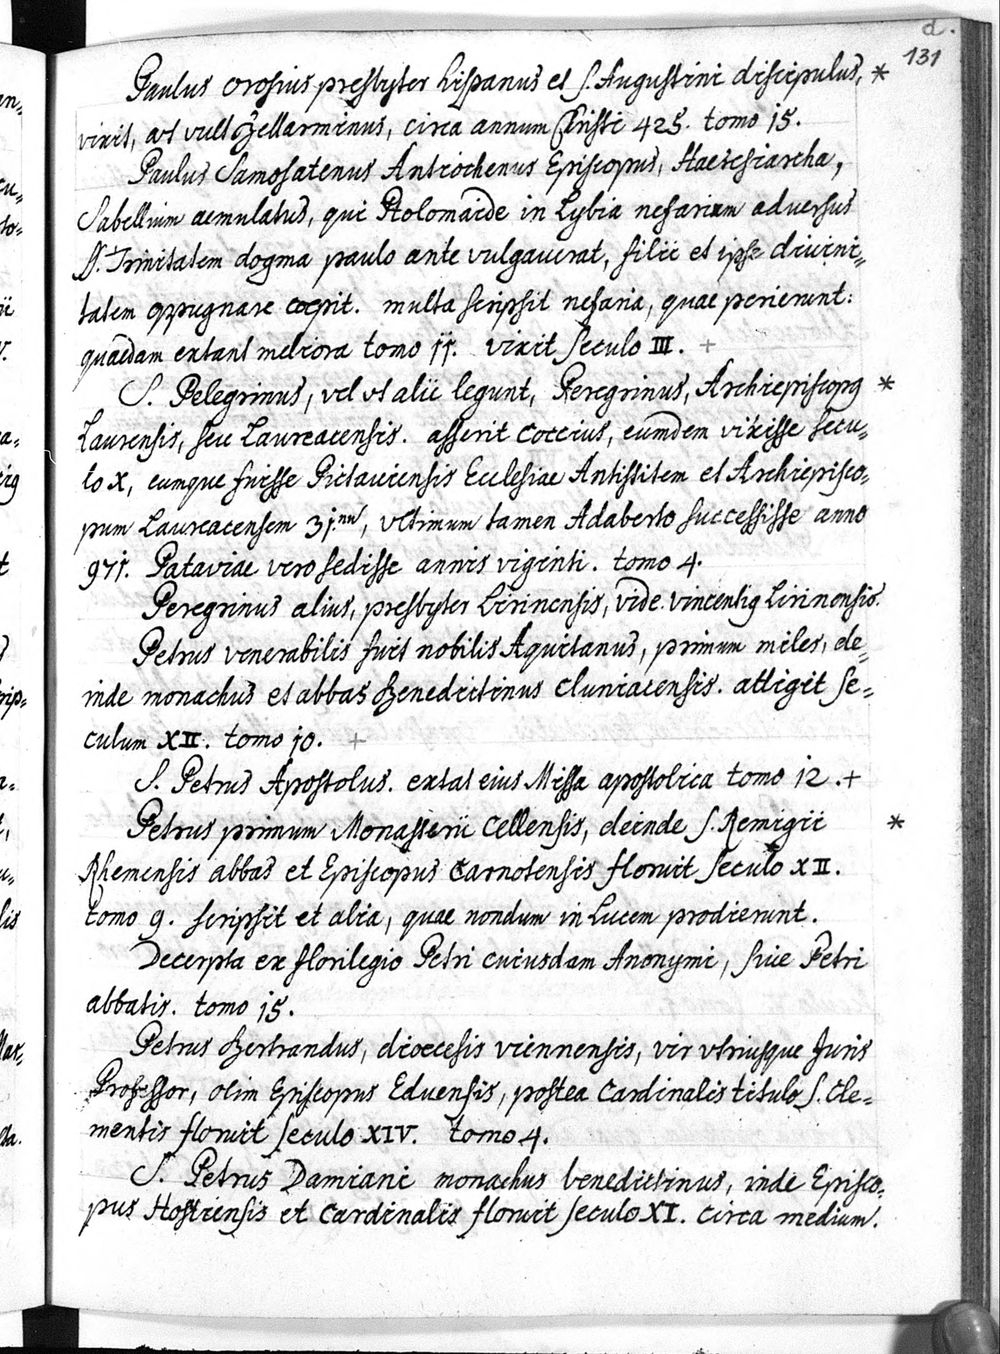 a.
131
Paulus Orosius presbyter hispanus et S. Augustini discipulus, *
vixit, ut vult Bellarminus, circa annum Christi 425. tomo 15.
Paulus Samosatenus Antiochenus Episcopus, Haeresiarcha,
Sabellium aemulatus, qui Ptolomaide in Lybia nefarium adversus
SS. Trinitatem dogma paulo ante vulgaverat, filii et ipse divini=
tatem oppugnare coepit. multa scripsit nefaria, quae perierunt:
quaedam extant meliora tomo 11. vixit seculo III. +
S. Pelegrinus, vel vt alii legunt, Peregrinus, Archiepiscopg *
Laurensis, seu Laureacensis. asserit Coccius, eumdem vixisse secu=
lo X, eumque fuisse Pictaviensis Ecclesiae Antistitem et Archiepisco=
pum Laureacensem 31.um, vltimum tamen Adaberto successisse anno
971. Pataviae vero sedisse annis viginti. tomo 4.
Peregrinus alius, presbyter Lirinensis, vide Vincentig Lirinensis.
Petrus venerabilis fuit nobilis Aquitanus, primum miles, de=
inde monachus et abbas Benedictinus Cluniacensis. attigit se=
culum XII. tomo 10. +
S. Petrus Apostolus. extat eius Missa apostolica tomo 12. +
Petrus primum Monasterii Cellensis, deinde S. Remigii *
Rhemensis abbas et Episcopus Carnotensis floruit seculo XII.
tomo 9. scripsit et alia, quae nondum in lucem prodierunt.
Decerpta ex florilegio Petri cuiusdam Anonymi, sive Petri
abbatis. tomo 15.
Petrus Bertrandus, dioecesis viennensis, vir vtriusque Juris
Professor, olim Episcopus Eduensis, postea Cardinalis titulo S. Cle=
mentis floruit seculo XIV. tomo 4.
S. Petrus Damiani monachus benedictinus, inde Episco=
pus Hostiensis et Cardinalis floruit seculo XI. circa medium.